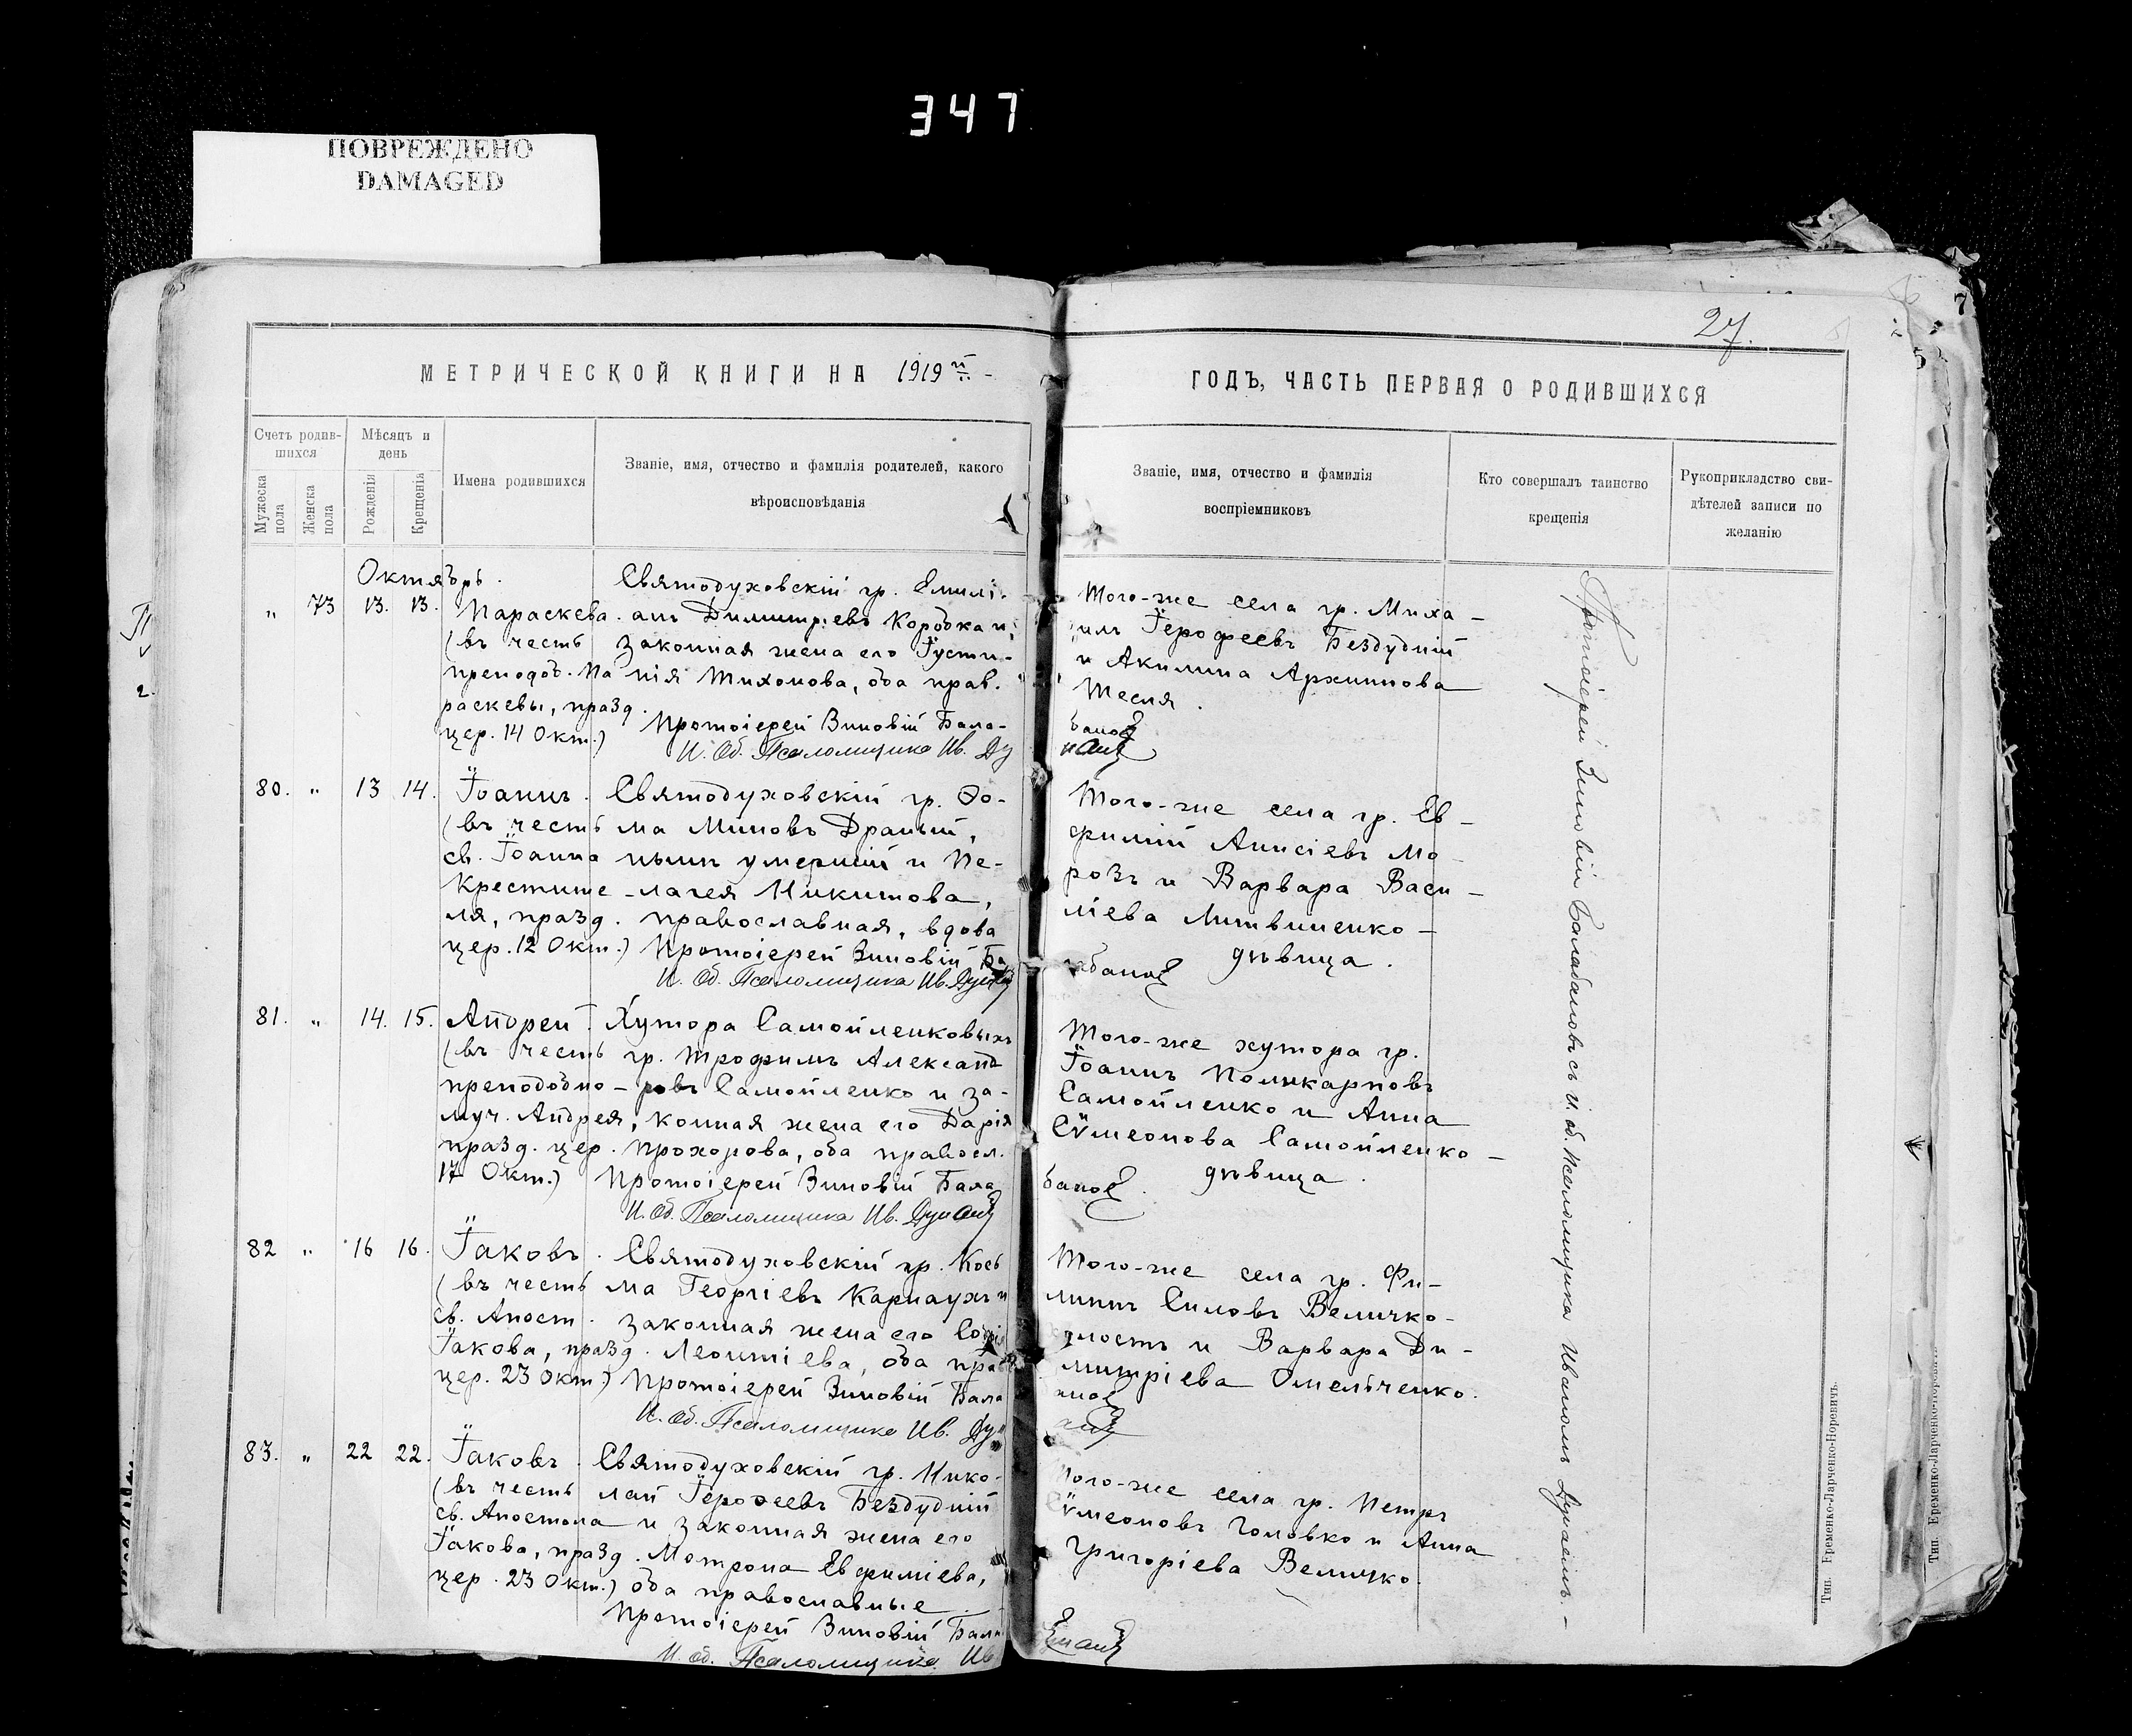 347
ПОВРЕЖДЕНО
DAMAGED
27.
МЕТРИЧЕСКОЙ КНИГИ НА 1919 й
ГОДЪ, ЧАСТЬ ПЕРВАЯ О РОДИВШИХСЯ
Счетъ родив-
шихся
Мужеска
пола
Женска
пола
Мѣсяцъ и
день
Рожденія
Крещенія
Имена родившихся
Званіе, имя, отчество и фамилія родителей, какого
вѣроисповѣданія
Званіе, имя, отчество и фамилія
воспріемниковъ
Кто совершалъ таинство
крещенія
Рукоприкладство сви-
дѣтелей записи по
желанію
Октябрь.
" 73 13. 13.
Параскева.
(въ честь
преподоб. Па
раскевы, празд.
цер. 14 Окт.)
Святодуховскій гр. Емилі-
анъ Димитріевъ Коробка и
законная жена его Іусти-
нія Тихонова, оба прав.
Протоіерей Зиновій Бала-
И. Об. Псаломщика Ив. Ду
Того-же села гр. Миха-
илъ Іерофеевъ Бездудній
и Акилина Архипова
Тесля.
банов
80. " 13 14.
Іоаннъ.
(въ честь
св. Іоанна
Крестите-
ля, празд.
цер. 12 Окт.)
Святодуховскій гр. Ѳо-
ма Миновъ Драный,
нынѣ умершій и Пе-
лагея Никитова,
православная, вдова
Протоіерей Зиновій Ба
И. Об. Псаломщика Ив. Дунаев
Того-же села гр. Ев-
фимій Анисіевъ Мо-
розъ и Варвара Васи-
ліева Литвиненко-
дѣвица.
лабанов
81. " 14. 15.
Андрей.
(въ честь
преподобно-
муч. Андрея,
празд. цер.
17 Окт.)
Хутора Самойленковыхъ
гр. Трофимъ Александ
ровъ Самойленко и за-
конная жена его Дарія
Прохорова, оба правосл.
Протоіерей Зиновій Бала
И. Об. Псаломщика Ив. Дунаев
Того-же хутора гр.
Іоаннъ Поликарповъ
Самойленко и Анна
Сѵмеонова Самойленко-
дѣвица.
банов.
82 " 16 16.
Іаковъ.
(въ честь
св. Апост.
Іакова, празд.
цер. 23 Окт.)
Святодуховскій гр. Кось
ма Георгіевъ Карнаухъ и
законная жена его Софія
Леонтіева, оба прав
Протоіерей Зиновій Бала
И. Об. Псаломщика Ив. Дун
Того-же села гр. Фи-
липпъ Силовъ Величко-
и Варвара Ди-
митріева Омельченко.
83. " 22 22.
Іаковъ.
(въ честь
св. Апостола
Іакова, празд.
цер. 23 Окт.)
Святодуховскій гр. Нико-
лай Іерофеевъ Бездудній
и законная жена его
Мотрона Евфиміева,
оба православные.
Протоіерей Зиновій Бала
И. Об. Псаломщика Ив
Того-же села гр. Петръ
Сѵмеоновъ Головко и Анна
Григоріева Величко.
Протоіерей Зиновій Балабановъ съ И. об. Псаломщика Иваномъ Дунаевымъ.-
Тип. Еременко-Ларченко-Норевичъ.